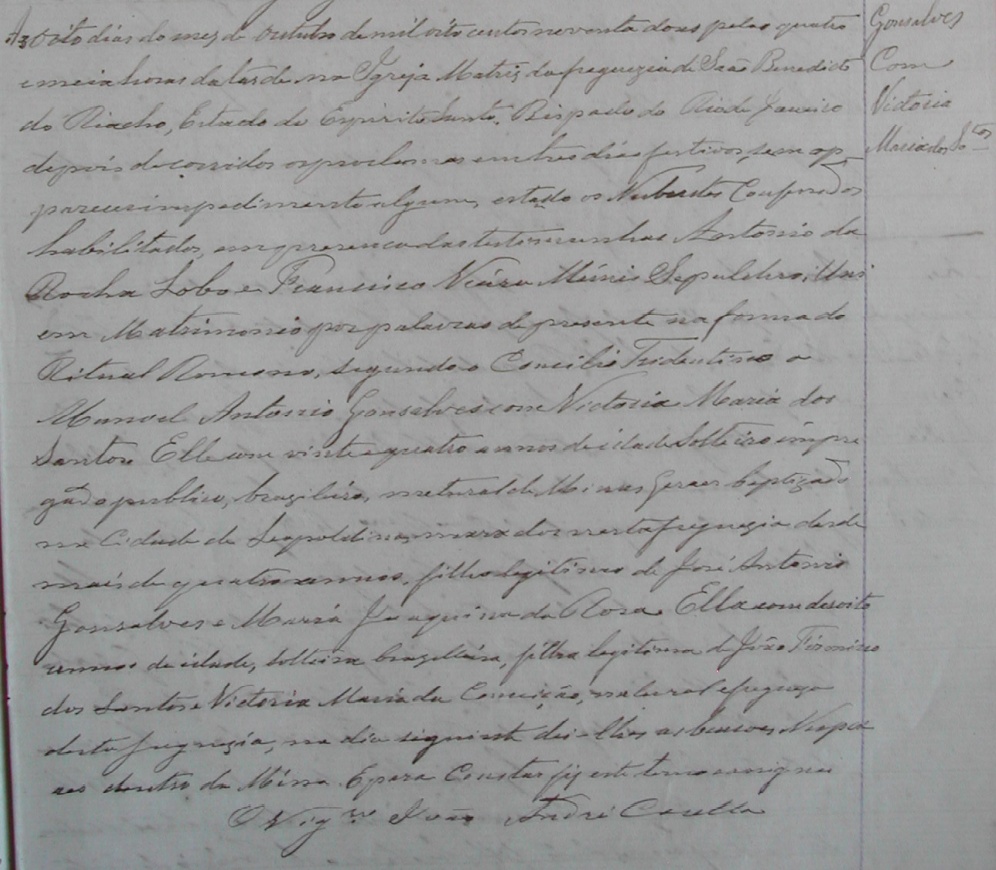 As oito dias do mez de Outubro de mil oito centos noventa dous pelas quatro
e meia horas da tarde na Igreja Matriz da freguezia de Saõ Benedicto
do Riacho, Estado do Espirito Santo, Bispado do Rio de Janeiro
depois de corridos os proclamas em tres dias festivos, sem ap-
parecer impedimento algum, estado os Nubentes Confessados
habilitados, em presença das testemunhas Antonio da
Rocha Lobo e Francisco Vieira Muniz Sepulchro, Uni
em Matrimonio por palavras de presente na forma do
Ritual Romano, segundo o Concilio Tridentino a
Manoel Antonio Gonsalves com Victoria Maria dos
Santos Elle com vinte e quatro annos de idade Solteiro impre
gado publico, brazileiro, natural de Minas Geraes baptizado
na Cidade de Leopoldina, nesta freguezia desde
mais de quatro annos, filho legitimo de José Antonio
Gonsalves e Maria Joaquina da Rosa. Ella com desoito
annos de idade, solteira brazileira, filha legitima de João Firmino
dos Santos e Victoria Maria da Conceição, natural e
desta freguezia, no dia seguinte dei-lhes as bençoes Nupci
aes dentro da Missa. E para Constar fiz este termo e assignei
O Vigro João André Casella
Gonsalves
Com
Victoria
Maria dos Stos